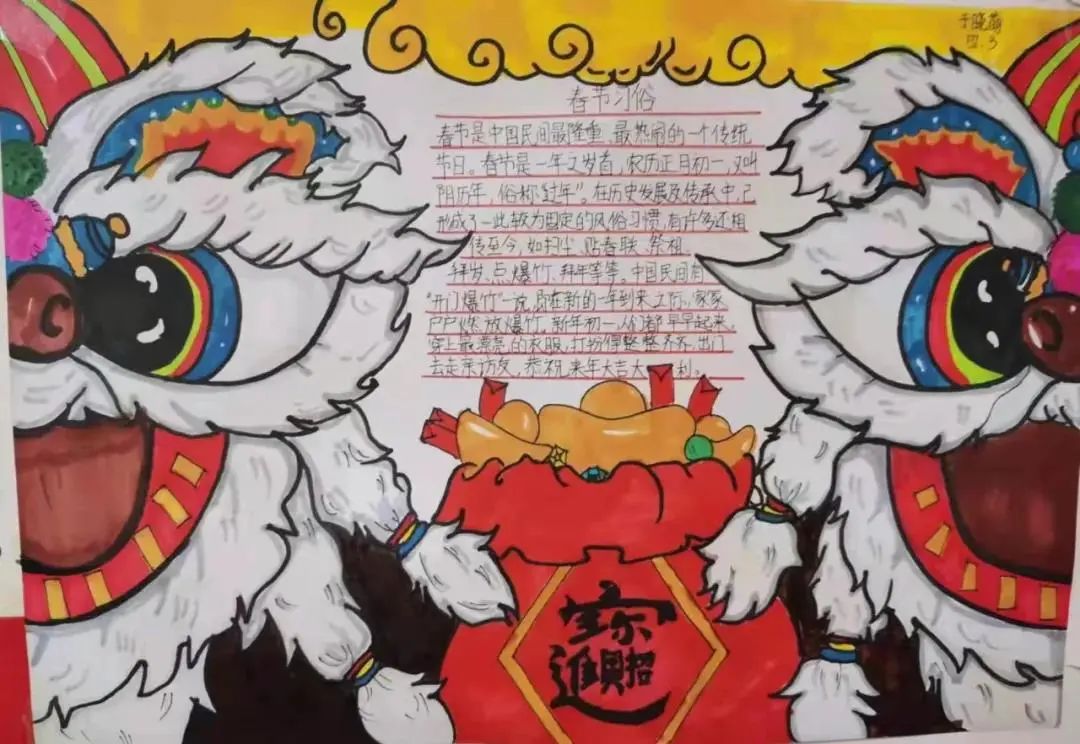 于晓萌
四.3
春节习俗
春节是中国民间最隆重 最热闹的一个传统
节日。春节是一年之岁首，农历正月初一，又叫
阴历年，俗称"过年"。在历史发展及传承中，已
形成了一些较为固定的风俗习惯，有许多还相
传至今，如扫尘、贴春联、祭祖、
拜岁、点爆竹、拜年等等。中国民间有
"开门爆竹"一说，即在新的一年到来之际，家家
户户燃放爆竹。新年初一，人们都早早起来，
穿上最漂亮的衣服，打扮得整整齐齐，出门
去走亲访友，恭祝来年大吉大利。
招財進寶